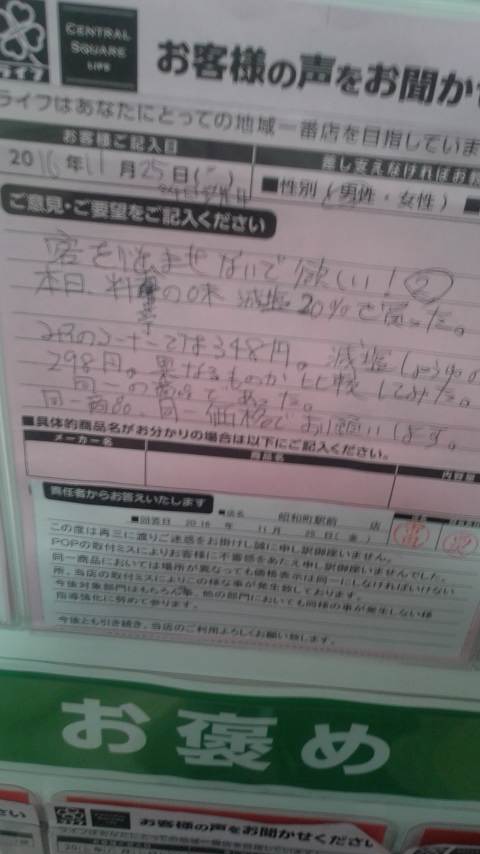 ライフ
CENTRAL
SQUARE
LIFE
お客様の声をお聞かせ
ライフはあなたにとっての地域一番店を目指していま
お客様ご記入日
差し支えなければお
2016年11月25日
■性別（男性・女性）
ご意見・ご要望をご記入ください
客を悩ませないで欲しい！②
本日、料の味 減塩20%で買った。
のコーナーでは348円。減塩しょうゆの
298円。異なるものか比較してみた。
同一の商品であった。
同一商品、同一価格でお願いします。
■具体的商品名がお分かりの場合は以下にご記入ください。
メーカー名
商品名
内容量
責任者からお答えいたします
■店名 昭和町駅前 店
■回答日 2016年 11月
この度は再三に渡りご迷惑をお掛けし誠に申し訳御座いません。
POPの取付ミスによりお客様に不審感をあたえ申し訳御座いませんでした。
同一商品においては場所が異なっても価格表示は同一にしなければいけない
所、当店の取付ミスによりこの様な事が発生致しております。
今後対象部門はもちろん、他の部門においても同様の事が発生しない様
指導強化に努めて参ります。
今後とも引き続き、当店のご利用よろしくお願い致します。
お褒め
さい
お客様の声をお聞かせくださ